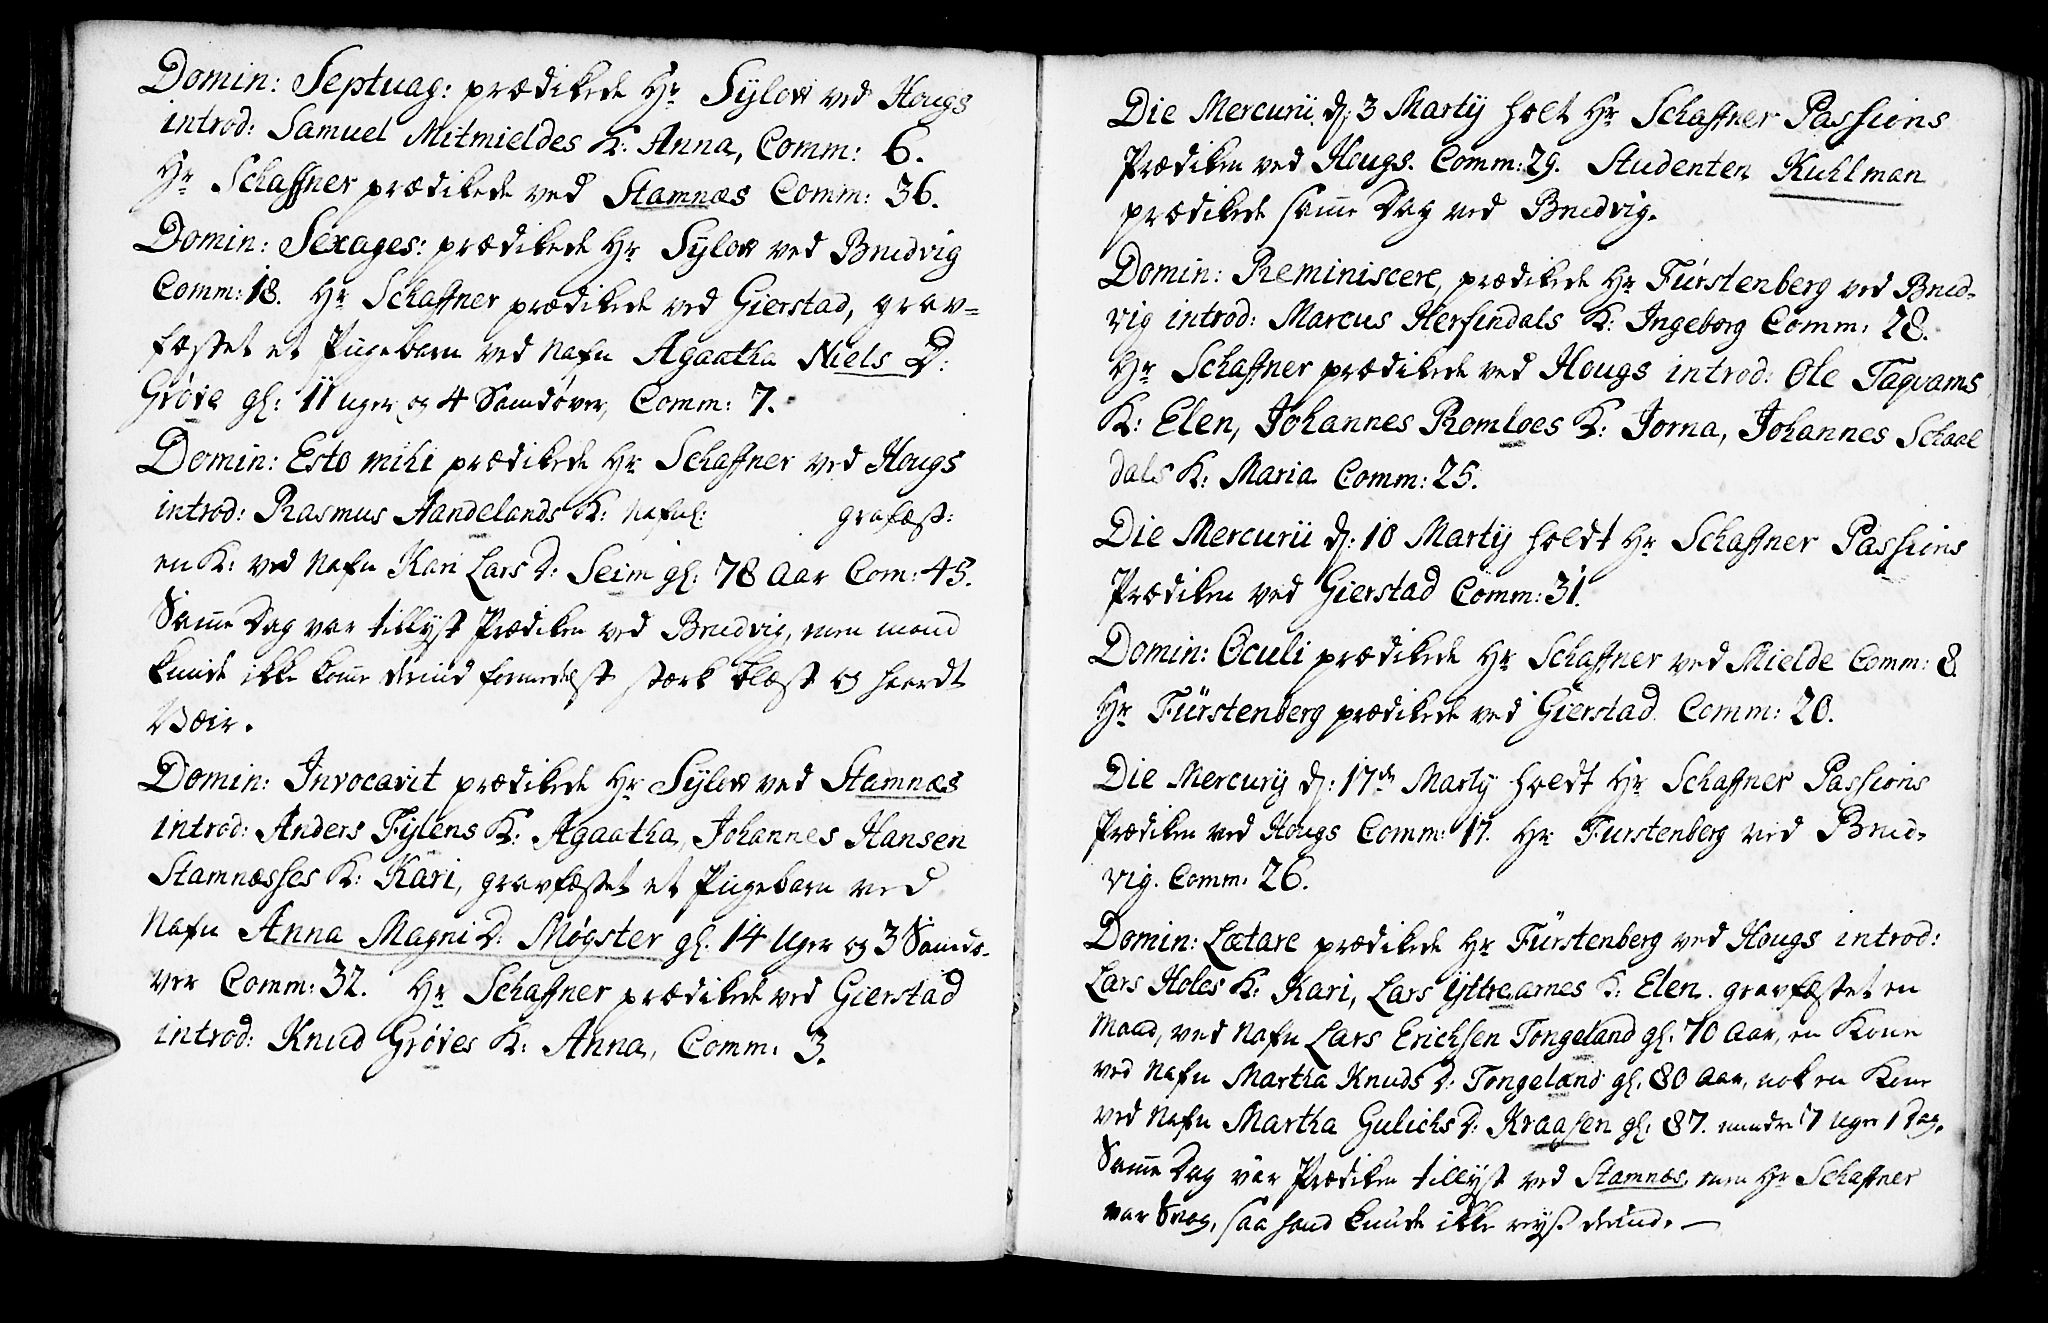 Domin: Septuag: prædikede Hr Sÿlow ved Hougs
introd: Samuel Mitmieldes K: Anna, Comm: 6.
Hr Schaffner prædikede ved Stamnæs Comm: 36.
Domin: Sexages: prædikede Hr Sÿlow ved Brudvig
Comm: 18. Hr Schaffner prædikede ved Gierstad, grav-
fæstet et Pigebarn ved Nafn Agaatha Niels D:
Grøve gl: 11 uger og 4 Samdøver, Comm: 7.
Domin: Esto mihi prædikede Hr Schaffner ved Hougs
introd: Rasmus Aandelands K: Nafnl: grafæst:
en K: ved Nafn Kari Lars D: Seim gl: 78 Aar Com: 45.
Samme Dag var tillyst Prædiken ved Brudvig, men mand
kunde ikke komme derind formedelst stærk blæst og haardt
Væir.
Domin: Invocavit prædikede Hr Sÿlow ved Stamnæs
introd: Anders Fylens K: Agaatha, Johannes Hansen
Stamnæsses K: Kari, gravfæstet et Pigebarn ved
Nafn Anna Magni D: Møgster gl. 14 Uger og 3 Samdø-
ver Comm: 32. Hr Schaffner prædikede ved Gierstad
introd: Knud Grøves K: Anna, Comm: 3.
Die Mercurii d: 3 Martij holt Hr Schaffner Passions
Prædiken ved Hougs. Comm: 29. Studenten Kuhlman
prædikede samme Dag ved Brudvig.
Domin: Reminiscere, prædikede Hr Fürstenberg ved Brud-
vig introd: Marcus Herfindals K: Ingeborg Comm: 28.
Hr Schaffner prædikede ved Hougs introd: Ole Taqvams
K: Elen, Johannes Romloes K: Jorna, Johannes Schaal
dals K: Maria Comm: 25.
Die Mercurii d: 10 Martij holdt Hr Schaffner Passions
Prædiken ved Gierstad Comm: 31.
Domin: Oculi prædikede Hr Schaffner ved Mielde Comm: 8
Hr Fürstenberg prædikede ved Gierstad Comm: 20.
Die Mercurij d: 17de Martij holdt Hr Schaffner Passions
Prædiken ved Hougs Comm: 17. Hr Furstenberg ved Brud-
vig. Comm: 26.
Domin: Lætare prædikede Hr Fürstenberg ved Hougs introd:
Lars Holes K: Kari, Lars Ÿttrearnes K: Elen. gravfæstet en
Mand, ved Nafn Lars Erichsen Tongeland gl. 70 Aar, en Kone
ved Nafn Martha Knuds D: Tongeland gl. 80 Aar, nok en Kone
ved Nafn Martha Gulichs D: Kraasen gl. 87. mindre 7 Uger 1 Dag.
Samme Dag var Prædiken tillyst ved Stamnæs, men Hr Schaffner
var Svag, saa hand kunde ikke reyse derind.